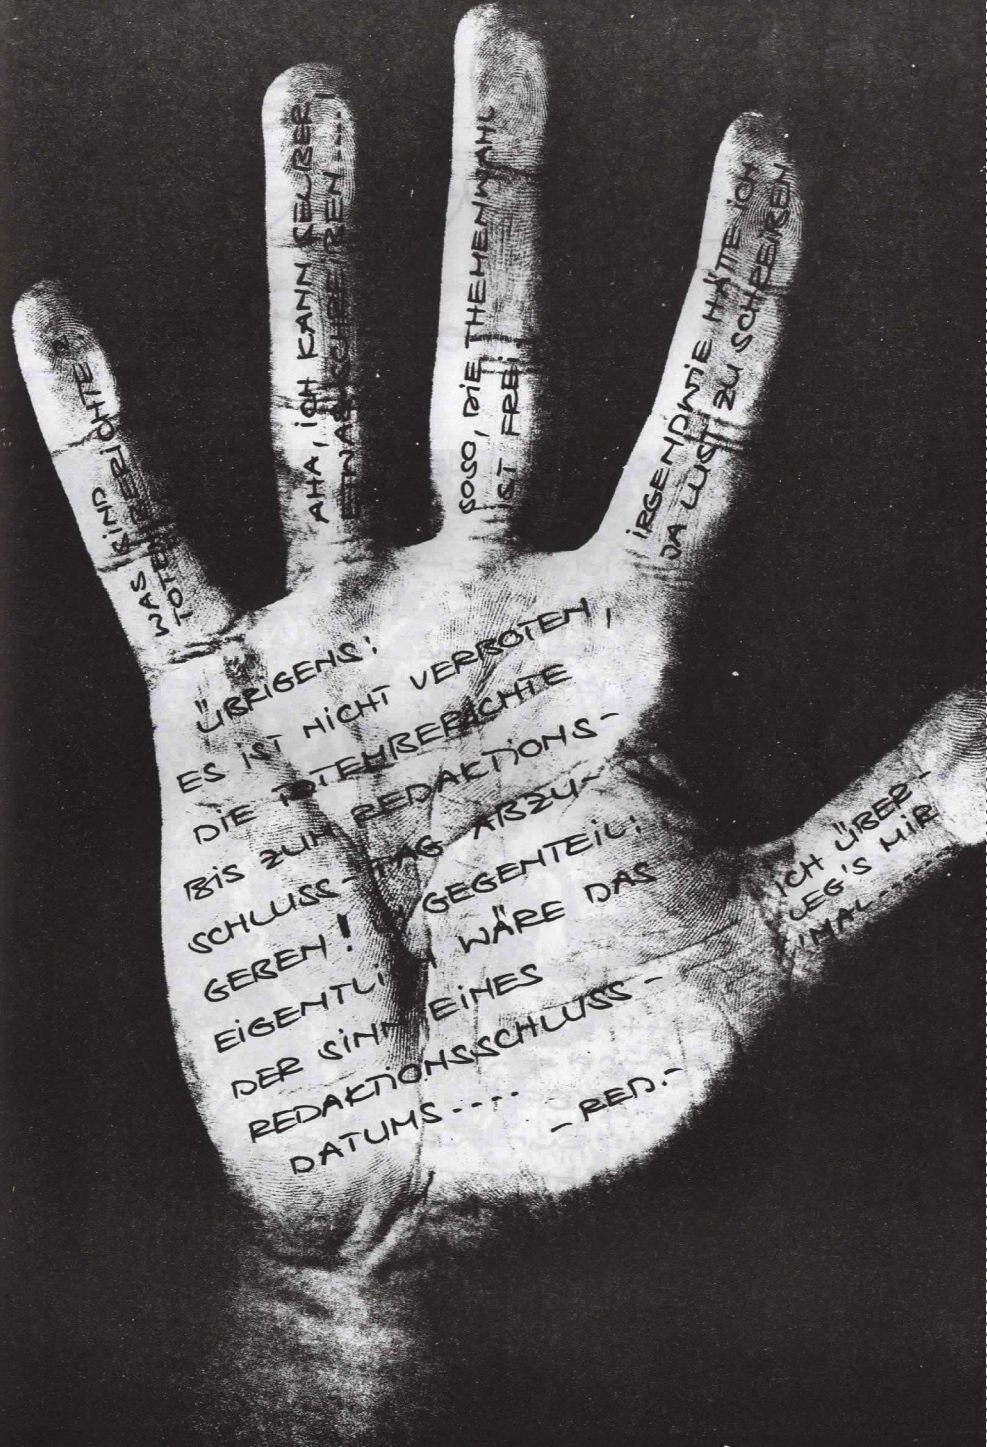 WAS SIND
TOTEMBERICHTE?
AHA, ICH KANN SELBER
ETWAS SCHREIBEN.....
SOSO, DIE THEMENWAHL
IST FREI!
IRGENDWIE HÄTTE ICH
DA LUST ZU SCHREIBEN
ÜBRIGENS:
ES IST NICHT VERBOTEN,
DIE TOTEMBERICHTE
BIS ZUM REDAKTIONS-
SCHLUSS-TAG ABZU-
GEBEN! GEGENTEIL:
EIGENTLICH WÄRE DAS
DER SINN EINES
REDAKTIONSSCHLUSS-
DATUMS....
- RED.-
ICH ÜBER-
LEG'S MIR
'MAL.....